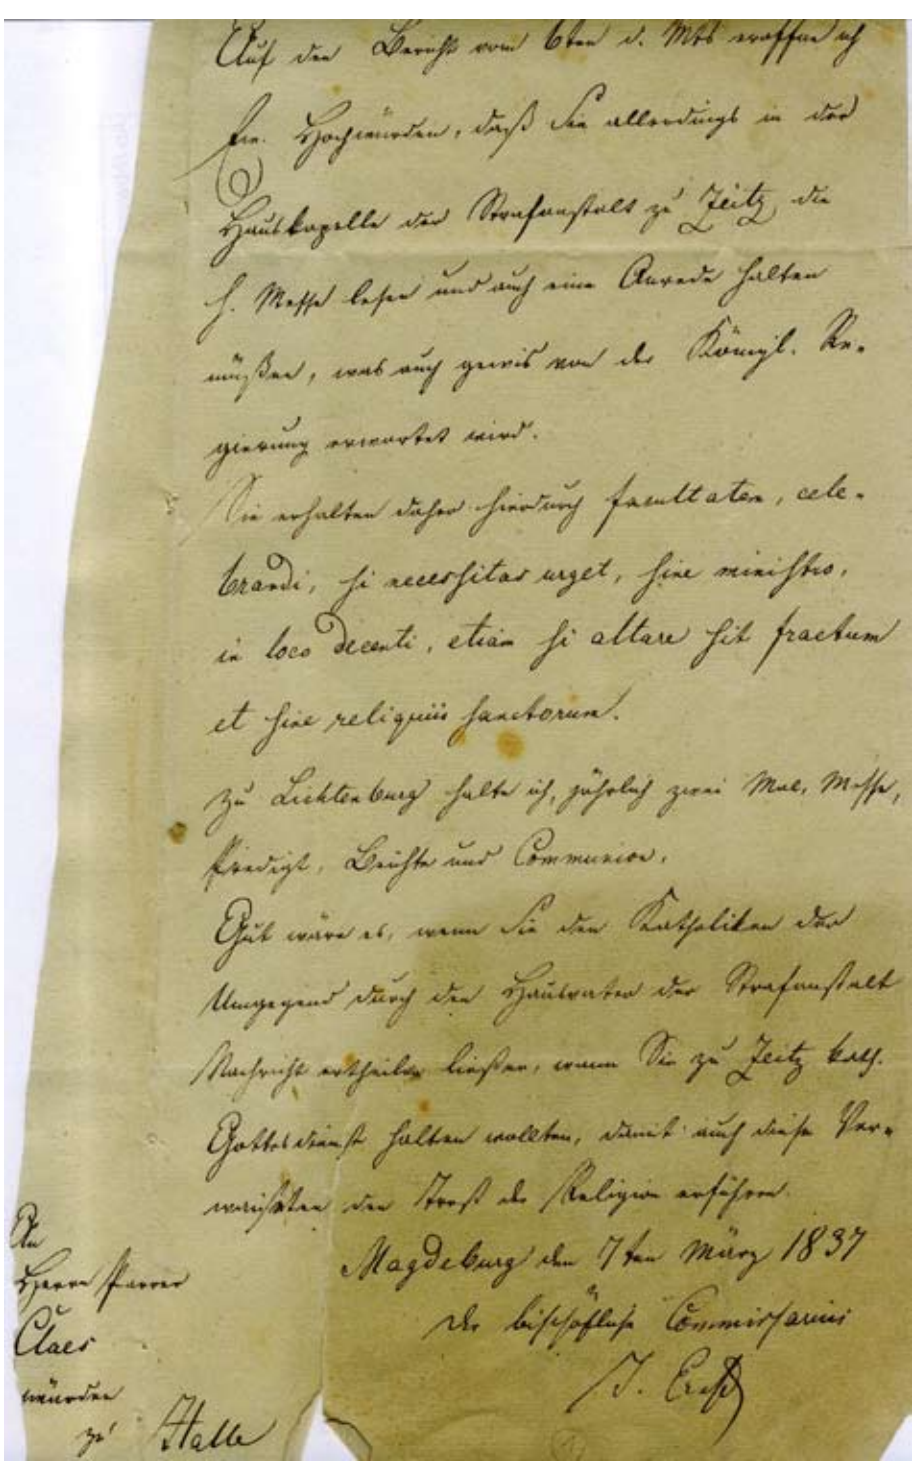 Auf den Bericht vom 6ten d. Mts eröffne ich
Ew. Hochwürden, daß Sie allerdings in der
Hauskapelle der Strafanstalt zu Zeitz die
h. Messe lesen und auch eine Anrede halten
müßen, was auch gewis von der Königl. Re-
gierung erwartet wird.
Sie erhalten daher hierdurch facultatem, cele-
brandi, si necessitas urget, sine ministro,
in loco decenti, etiam si altare sit fractum
et sine reliquiis sanctorum.
Zu Lichtenburg halte ich, jährlich zwei Mal, Messe,
Predigt, Beichte und Communion.
Gut wäre es, wenn Sie den Katholiken der
Umgegend durch den Hausvater der Strafanstalt
Nachricht ertheilen ließen, wann Sie zu Zeitz kath.
Gottesdienst halten wollten, damit auch diese Ver-
waisten den Trost der Religion erführen.
Magdeburg den 7ten März 1837
Der bischöfliche Commissarius
An
Herrn Pfarrer
Claes
würden
zu Halle